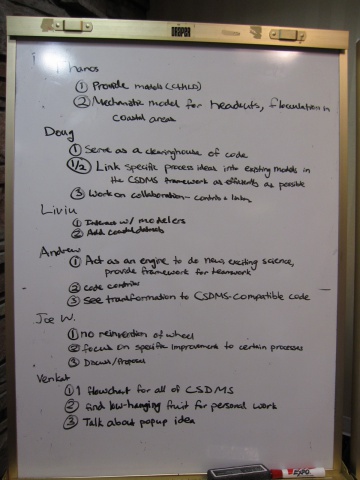 DRAPER
Thanos
① Provide models (CHILD)
② Mechanistic model for headcuts, flocculation in
coastal areas
Doug
① Serve as a clearinghouse of code
1/2 Link specific process ideas into existing models in
the CSDMS framework as efficiently as possible
③ Work on collaboration - contrib &
Liviu
① Interact w/ modelers
② Add coastal datasets
Andrew
① Act as an engine to do new, exciting science,
provide framework for teamwork
② code contrib
③ See transformation to CSDMS-compatible code
Joe W.
① no reinvention of wheel
② focus on specific improvement to certain processes
③ Discuss/Propose
Venkat
① 1 flowchart for all of CSDMS
② find low-hanging fruit for personal work
③ Talk about popup idea
EXPO